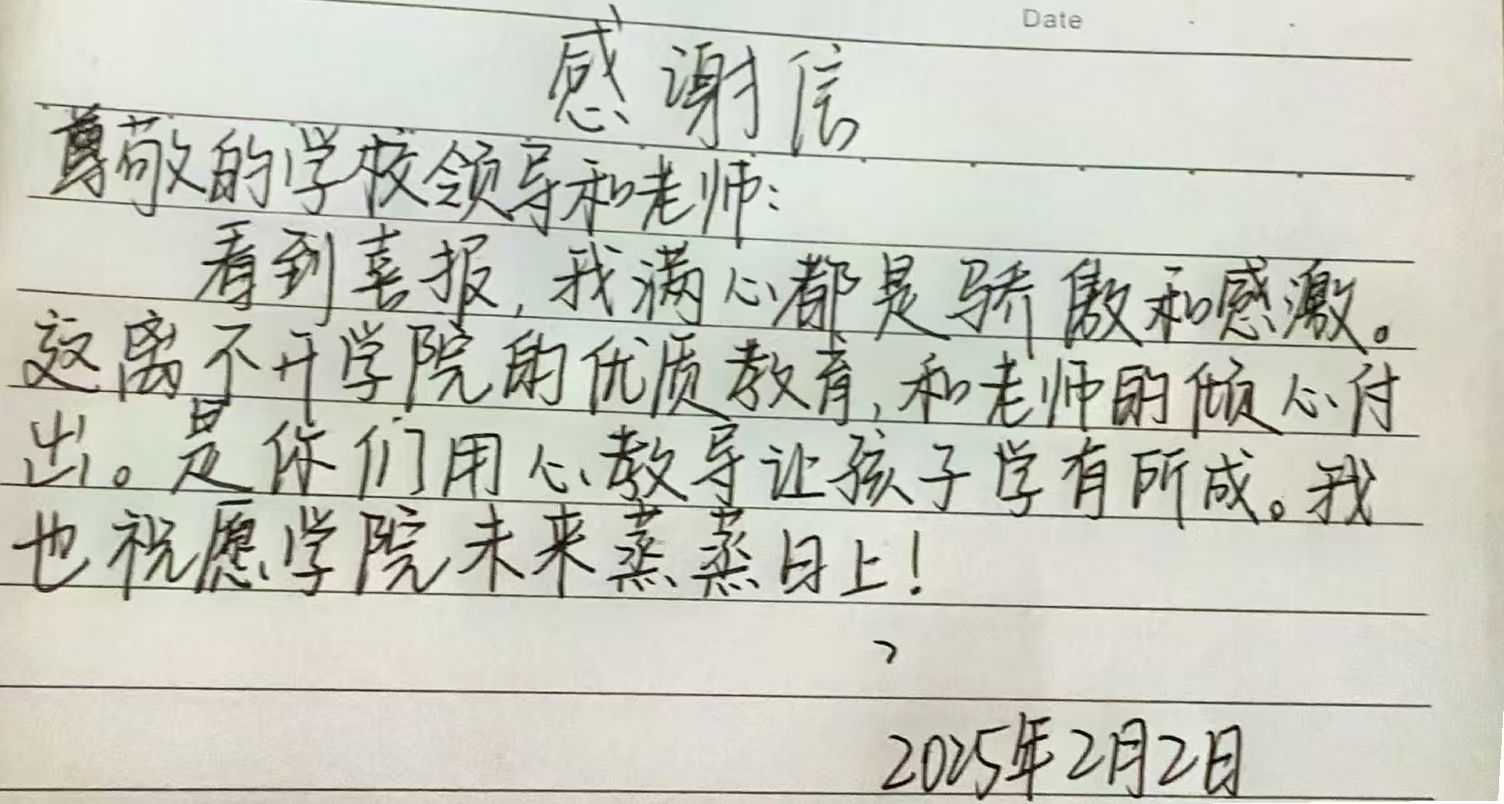 Date
感谢信
尊敬的学校领导和老师:
看到喜报,我满心都是骄傲和感激。
这离不开学院的优质教育,和老师的倾心付
出。是你们用心教导让孩子学有所成。我
也祝愿学院未来蒸蒸日上!
2025年2月2日